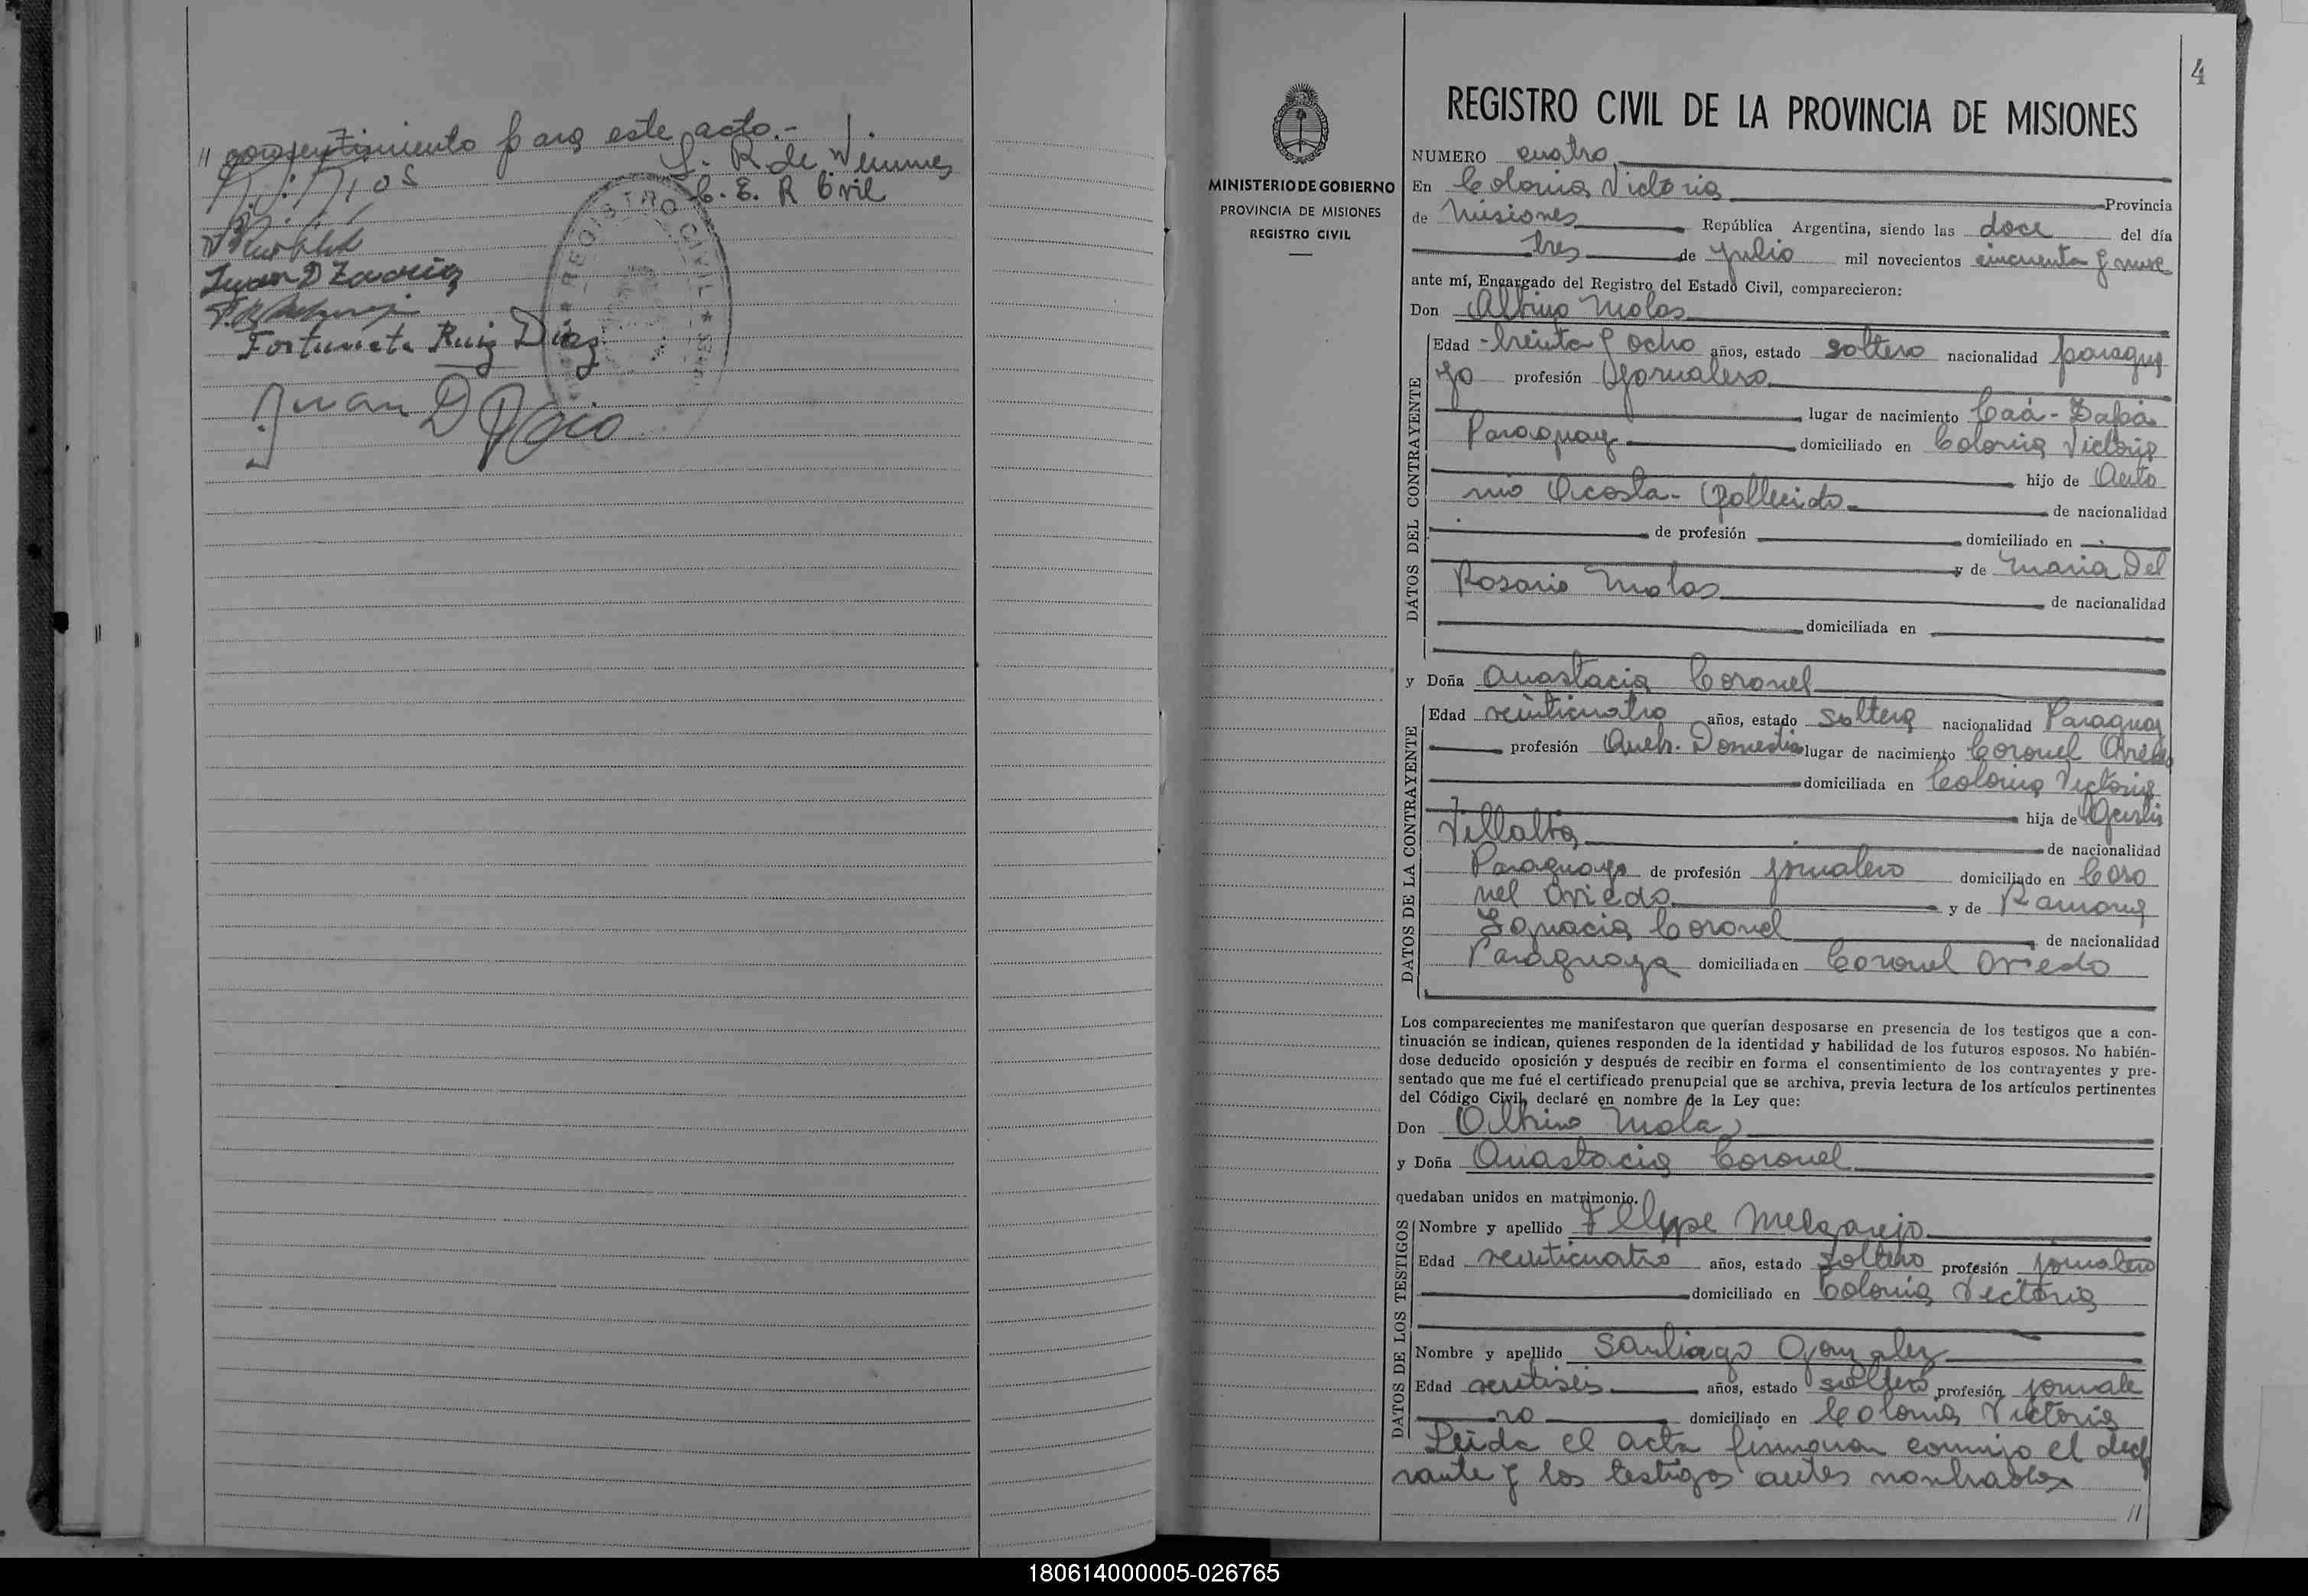 " consentimiento para este acto.-
S. R de Wemmes
E. E. R Civil
REGISTRO CIVIL
Juan D Zavoria
Fortunata Ruiz Diaz
Juan D
4
REGISTRO CIVIL DE LA PROVINCIA DE MISIONES
MINISTERIO DE GOBIERNO
PROVINCIA DE MISIONES
REGISTRO CIVIL
NUMERO cuatro
En Colonia Victoria Provincia
de Misiones República Argentina, siendo las doce del día
tres de Julio mil novecientos cincuenta y nueve
ante mí, Encargado del Registro del Estado Civil, comparecieron:
Don Albino Molas
DATOS DEL CONTRAYENTE
Edad treinta y ocho años, estado soltero nacionalidad paragua
yo profesión Jornalero
lugar de nacimiento Caá-Zapá
Paraguay domiciliado en Colonia Victoria
hijo de Anto
nio Acosta- Fallecido de nacionalidad
de profesión domiciliado en
y de Maria Del
Rosario Molas de nacionalidad
domiciliada en
y Doña Anastacia Coronel
DATOS DE LA CONTRAYENTE
Edad veinticuatro años, estado soltera nacionalidad Paraguay
profesión Queh. Domestic lugar de nacimiento Coronel Oviedo
domiciliada en Colonia Victoria
hija de
Villalba de nacionalidad
Paraguayo de profesión jornalero domiciliado en Coro
nel Oviedo y de Ramona
Ignacia Coronel de nacionalidad
Paraguaya domiciliada en Coronel Oviedo
Los comparecientes me manifestaron que querían desposarse en presencia de los testigos que a con-
tinuación se indican, quienes responden de la identidad y habilidad de los futuros esposos. No habién-
dose deducido oposición y después de recibir en forma el consentimiento de los contrayentes y pre-
sentado que me fué el certificado prenupcial que se archiva, previa lectura de los artículos pertinentes
del Código Civil, declaré en nombre de la Ley que:
Don Albino Molas
y Doña Anastacia Coronel
quedaban unidos en matrimonio.
DATOS DE LOS TESTIGOS
Nombre y apellido Melgarejo
Edad veinticuatro años, estado soltero profesión jornalero
domiciliado en Colonia Victoria
Nombre y apellido Santiago Gonzalez
Edad veintiseis años, estado soltero profesión jornale
ro domiciliado en Colonia Victoria
Leida el acta firmaron conmigo el decl
rante y los testigos antes nombrados
//
180614000005-026765